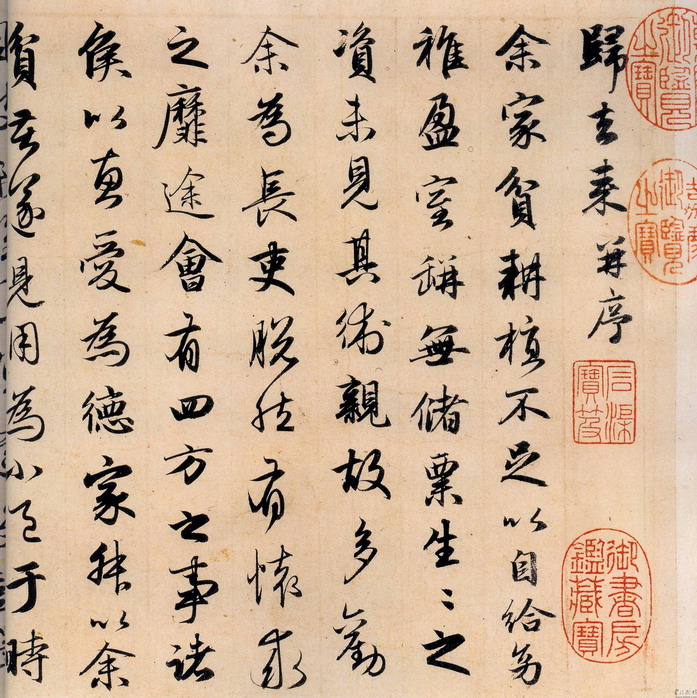 歸去来并序
余家貧耕植不足以自給幼
稚盈室缾無儲粟生〻之
資未見其術親故多勸
余為長吏脱然有懷求
之靡途會有四方之事諸
侯以惠愛為德家叔以余
貧苦遂見用為小邑于時
御覽之寶
御覽之寶
石渠寶笈
御書房鑑藏寶